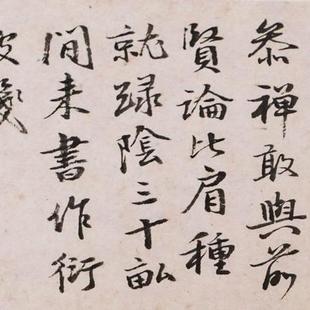 恭禪敢與前
賢論比肩種
就綠陰三十畝
閒来書作衍
波箋